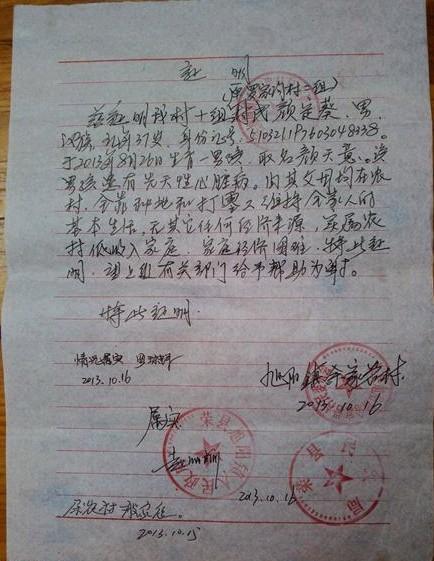 证明
(原罗家沟村二组)
兹证明我村十组村民颜定葵,男,
汉族,现年37岁,身份证号:510321197603048338。
于2013年8月26日生育一男孩,取名颜天意。该
男孩患有先天性心脏病。由其父母均在农
村,全靠种地和打零工维持全家人的
基本生活,无其它任何经济来源,实属农
村低收入家庭。家庭经济困难,特此证
明,望上级有关部门给予帮助为谢。
特此证明
情况属实
2013.10.16
旭阳镇
2013.10.16
属实
荣县旭阳镇人民政府
2013.10.16
荣县民政局
属农村
2013.10.15